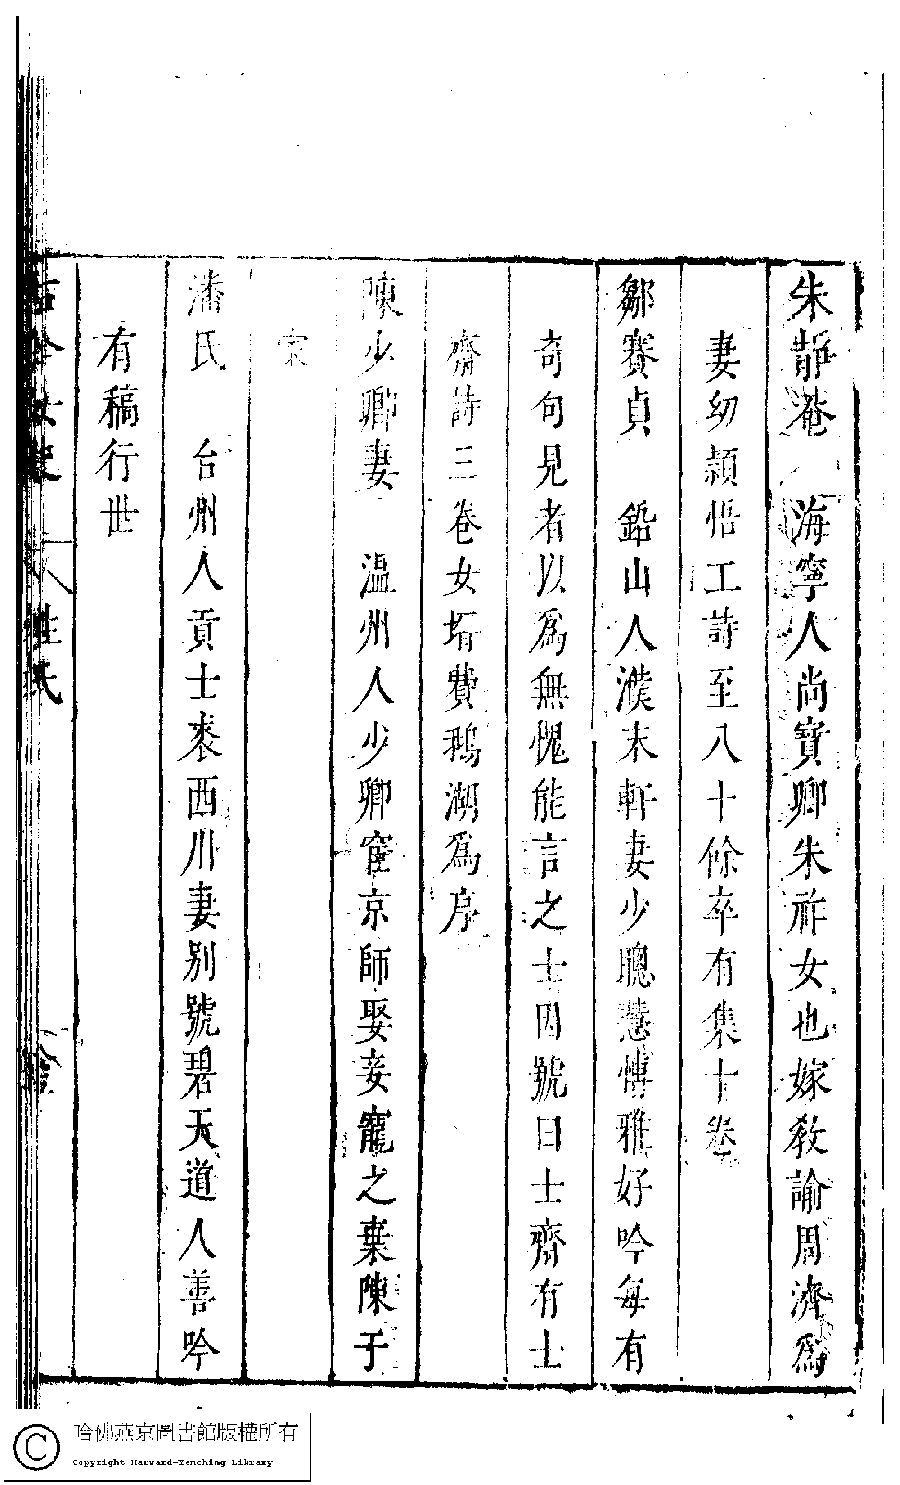 朱靜菴　海寧人尚寶卿朱祚女也嫁教諭周濟爲
妻幼穎悟工詩至八十餘卒有集十卷
鄒賽貞　鉛山人濮末軒妻少聰慧博雅好吟每有
奇句見者以爲無愧能言之士因號曰士齋有士
齋詩三卷女壻費鵝湖爲序
陳少卿妻　溫州人少卿宦京師娶妾寵之棄陳于
家
潘氏　台州人貢士裘西川妻別號碧天道人善吟
有稿行世
古今女史　姓氏
哈佛燕京圖書館版權所有
Copyright Harvard-Yenching Library